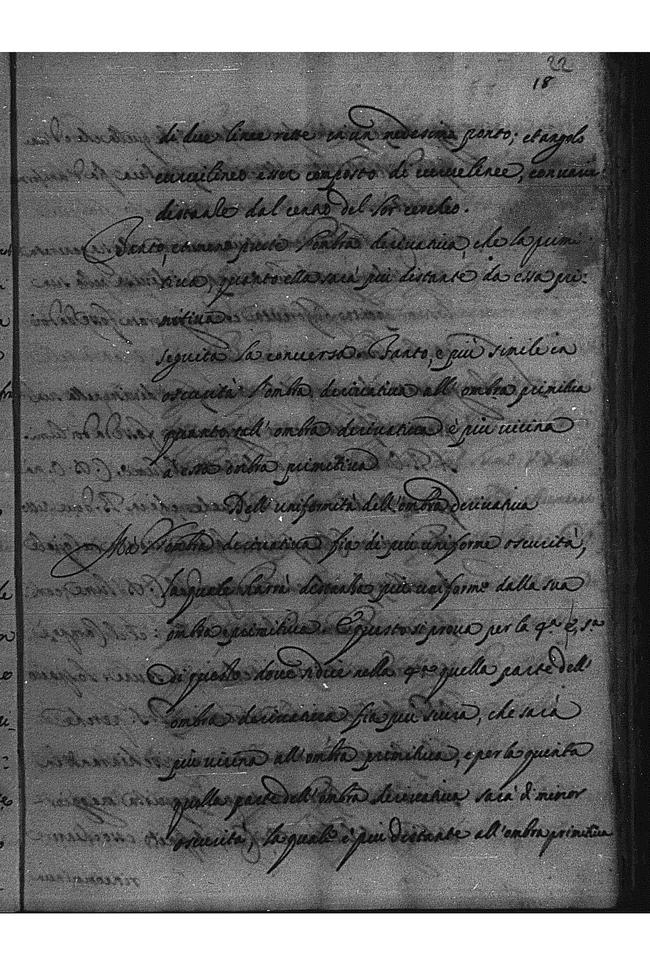 22
18
di due linee rette in un medesimo ponto; et angolo
curuilineo esser composto di curue linee,
distante dal centro del lor cerchio.
Tanto, et meno puote l'ombra deriuatiua, che la primi
tiua, quanto ella sarà più distante da essa pri=
mitiua
seguita la conuersa. Tanto, è più simile in
oscurità l'ombra deriuatiua all'ombra primitiua
quanto tall'ombra deriuatiua è più uicina
à essa ombra primitiua
Dell'uniformità dell'ombra deriuatiua
L'ombra deriuatiua fia di più uniforme oscurità,
la quale harrà distantia più uniforme dalla sua
ombra primitiua. E questo si proua per la 4.a e 5.a
di questo doue si dice nella 4.ta quella parte dell'
ombra deriuatiua fia più scura, che sarà
più uicina all'ombra primitiua, e per la quinta
quella parte dell'ombra deriuatiua sarà di minor
oscurità, la quale è più distante all'ombra primitiua